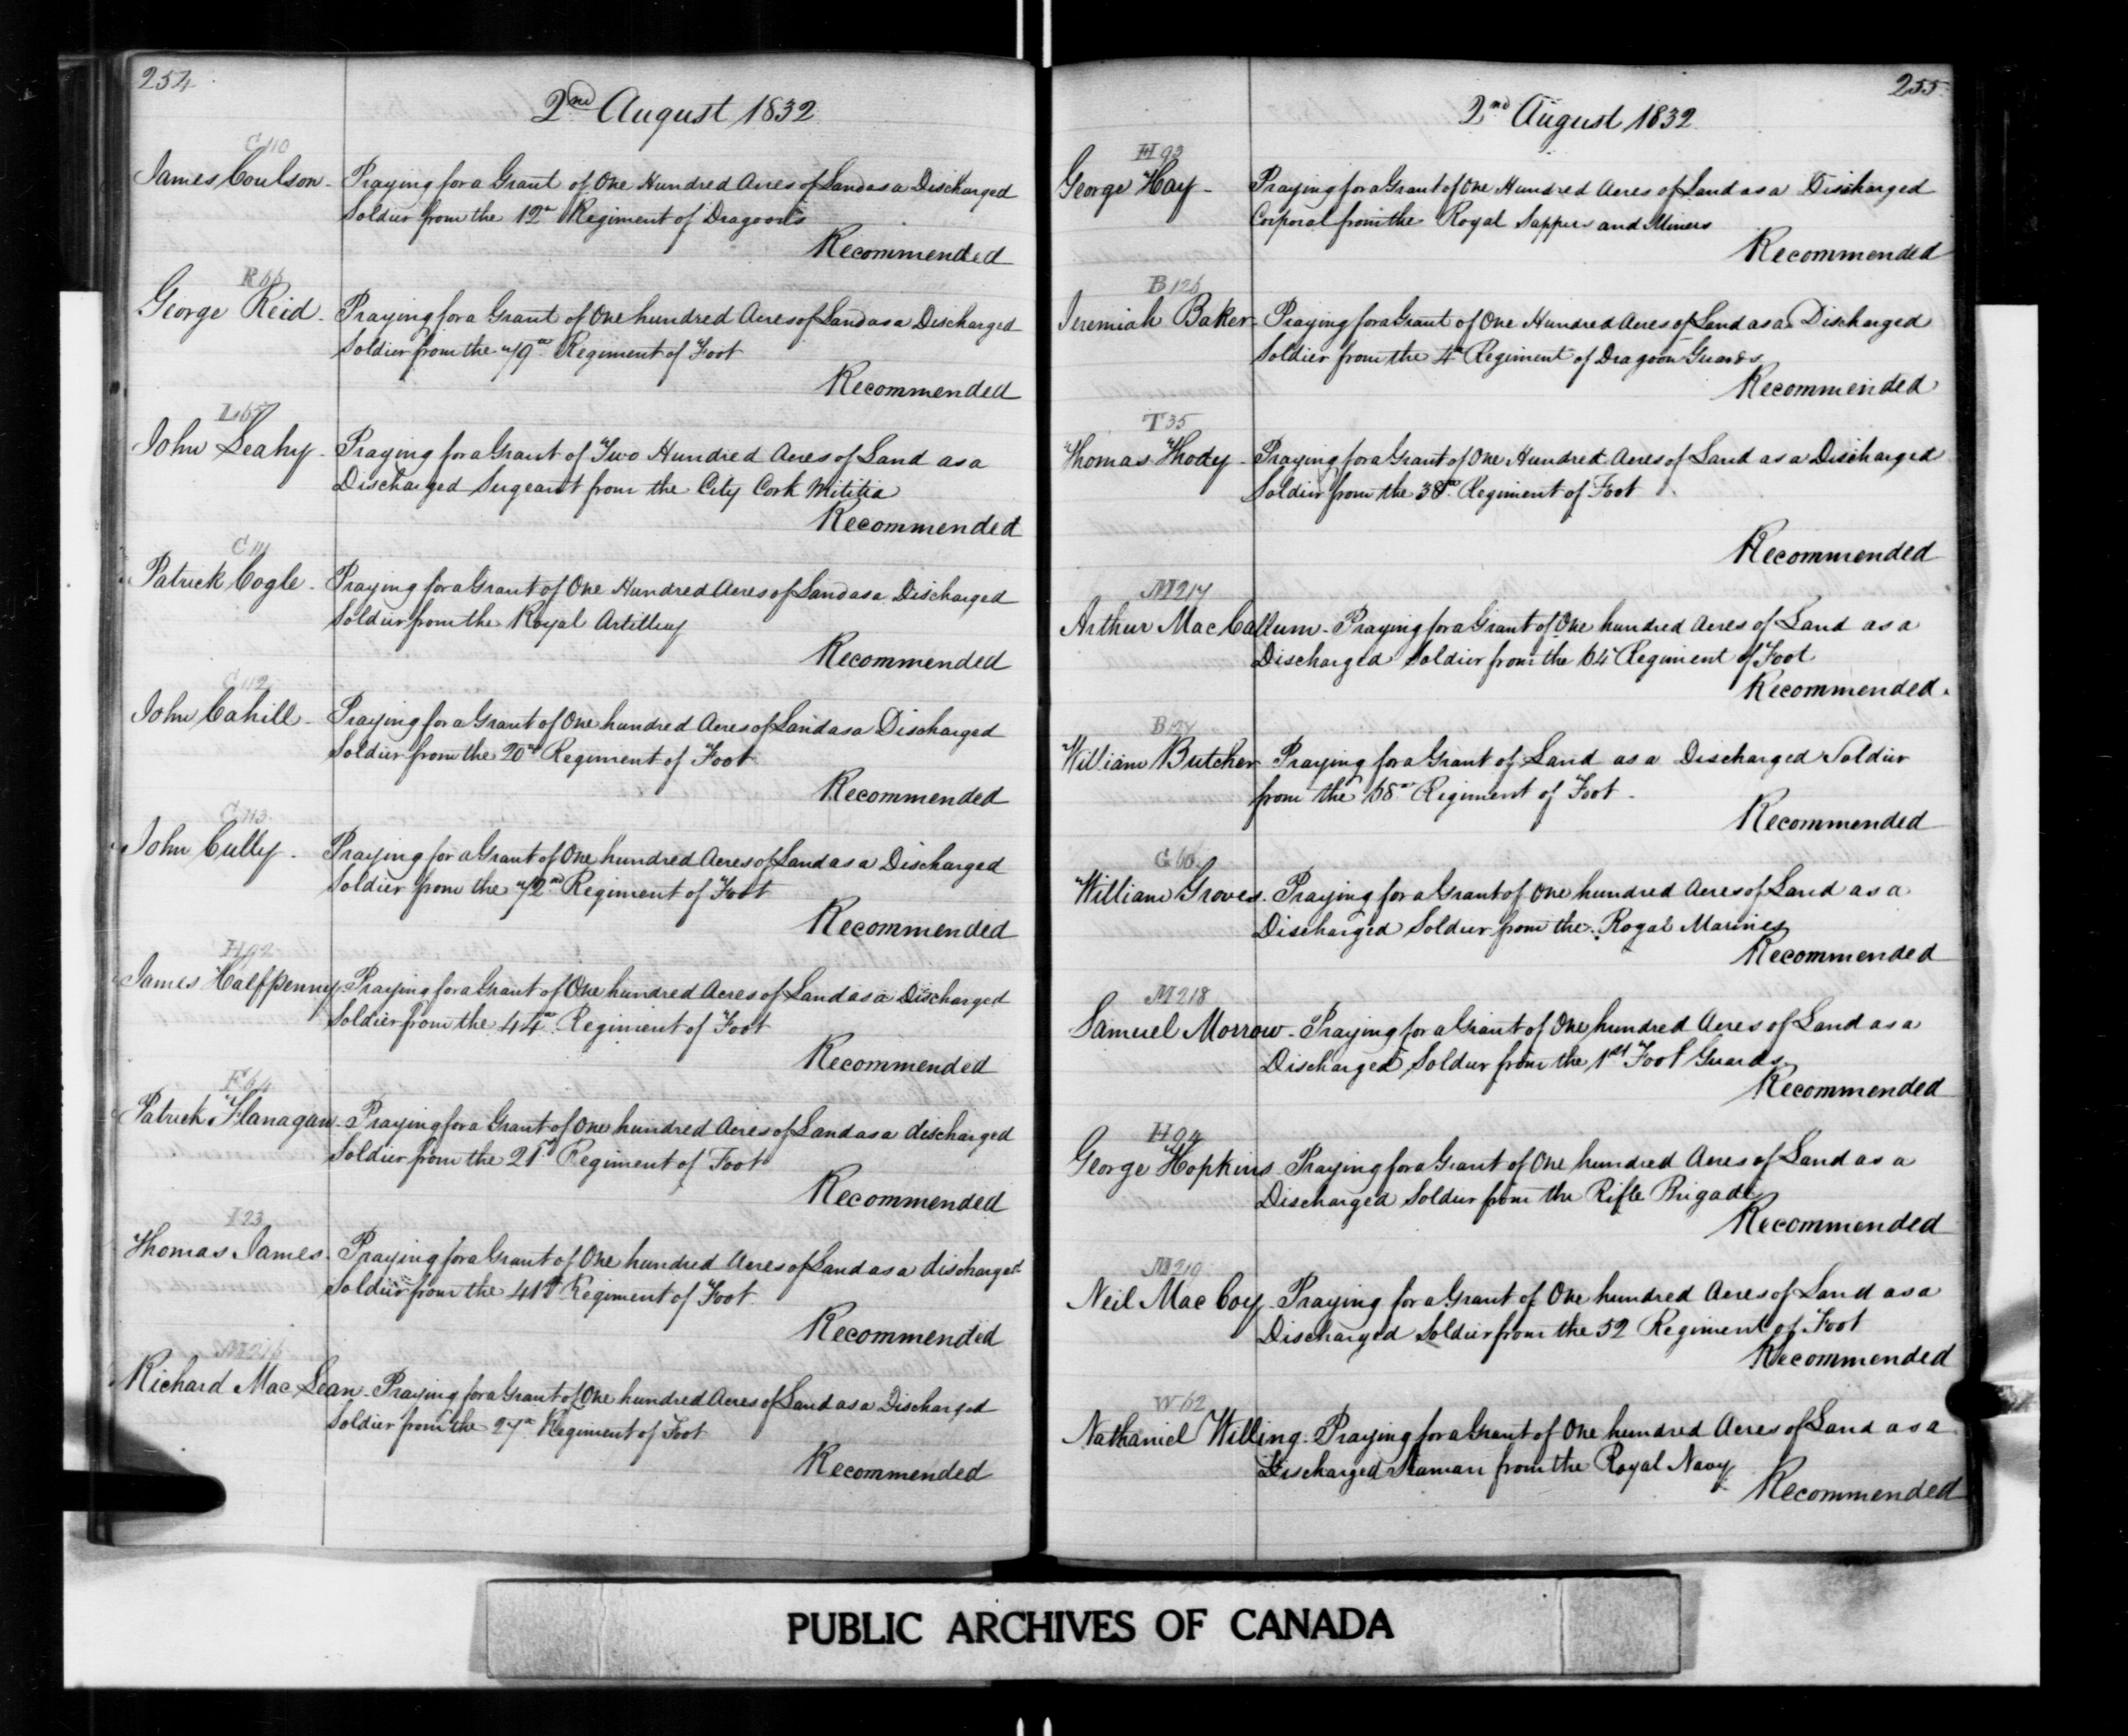 254
2nd August 1832
C 110
James Coulson - Praying for a Grant of One Hundred Acres of Land as a Discharged
Soldier from the 12th Regiment of Dragoons
Recommended
R 66
George Reid - Praying for a Grant of One hundred Acres of Land as a Discharged
Soldier from the 79th Regiment of Foot
Recommended
John Leahy - Praying for a Grant of Two Hundred Acres of Land as a
Discharged Sergeant from the City Cork Militia
Recommended
C 111
Patrick Cogle - Praying for a Grant of One Hundred Acres of Land as a Discharged
Soldier from the Royal Artillery
Recommended
C 112
John Cahill - Praying for a Grant of One hundred Acres of Land as a Discharged
Soldier from the 20th Regiment of Foot
Recommended
C 113
John Cully - Praying for a Grant of One hundred Acres of Land as a Discharged
Soldier from the 72nd Regiment of Foot
Recommended
H 92
James Halfpenny - Praying for a Grant of One hundred Acres of Land as a Discharged
Soldier from the 44th Regiment of Foot
Recommended
F 64
Patrick Flanagan - Praying for a Grant of One hundred Acres of Land as a discharged
Soldier from the 21st Regiment of Foot
Recommended
I 23
Thomas James - Praying for a Grant of One hundred Acres of Land as a discharged
Soldier from the 41st Regiment of Foot
Recommended
M 216
Richard Mac Lean - Praying for a Grant of One hundred Acres of Land as a Discharged
Soldier from the 27th Regiment of Foot
Recommended
255
2nd August 1832
H 93
George Hay - Praying for a Grant of One Hundred Acres of Land as a Discharged
Corporal from the Royal Sappers and Miners
Recommended
B 126
Jeremiah Baker - Praying for a Grant of One Hundred Acres of Land as a Discharged
Soldier from the 4th Regiment of Dragoon Guards
Recommended
T 35
Thomas Thody - Praying for a Grant of One Hundred Acres of Land as a Discharged
Soldier from the 38th Regiment of Foot
Recommended
M 217
Arthur Mac Callum - Praying for a Grant of One hundred Acres of Land as a
Discharged Soldier from the 64 Regiment of Foot
Recommended.
William Butcher - Praying for a Grant of Land as a Discharged Soldier
from the 68th Regiment of Foot -
Recommended
G 60
William Groves - Praying for a Grant of One hundred Acres of Land as a
Discharged Soldier from the Royal Marines
Recommended
M 218
Samuel Morrow - Praying for a Grant of One hundred Acres of Land as a
Discharged Soldier from the 1st Foot Guards
Recommended
H 94
George Hopkins - Praying for a Grant of One hundred Acres of Land as a
Discharged Soldier from the Rifle Brigade
Recommended
M 219
Neil Mac Coy - Praying for a Grant of One hundred Acres of Land as a
Discharged Soldier from the 52 Regiment of Foot
Recommended
W 62
Nathaniel Willing - Praying for a Grant of One hundred Acres of Land as a
Discharged Seaman from the Royal Navy
Recommended
PUBLIC ARCHIVES OF CANADA